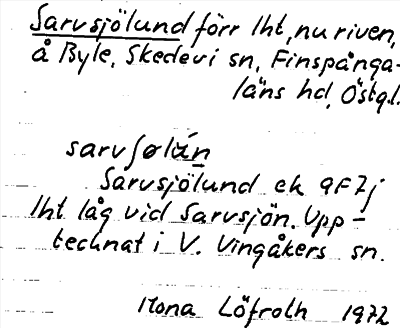 Sarvsjölund förr lht, nu riven,
å Byle, Skedevi sn, Finspånga-
läns hd, Östgl.
sarvʃølán
Sarvsjölund ek 9F7j
lht låg vid Sarvsjön. Upp-
tecknat i V. Vingåkers sn.
Mona Löfroth 1972